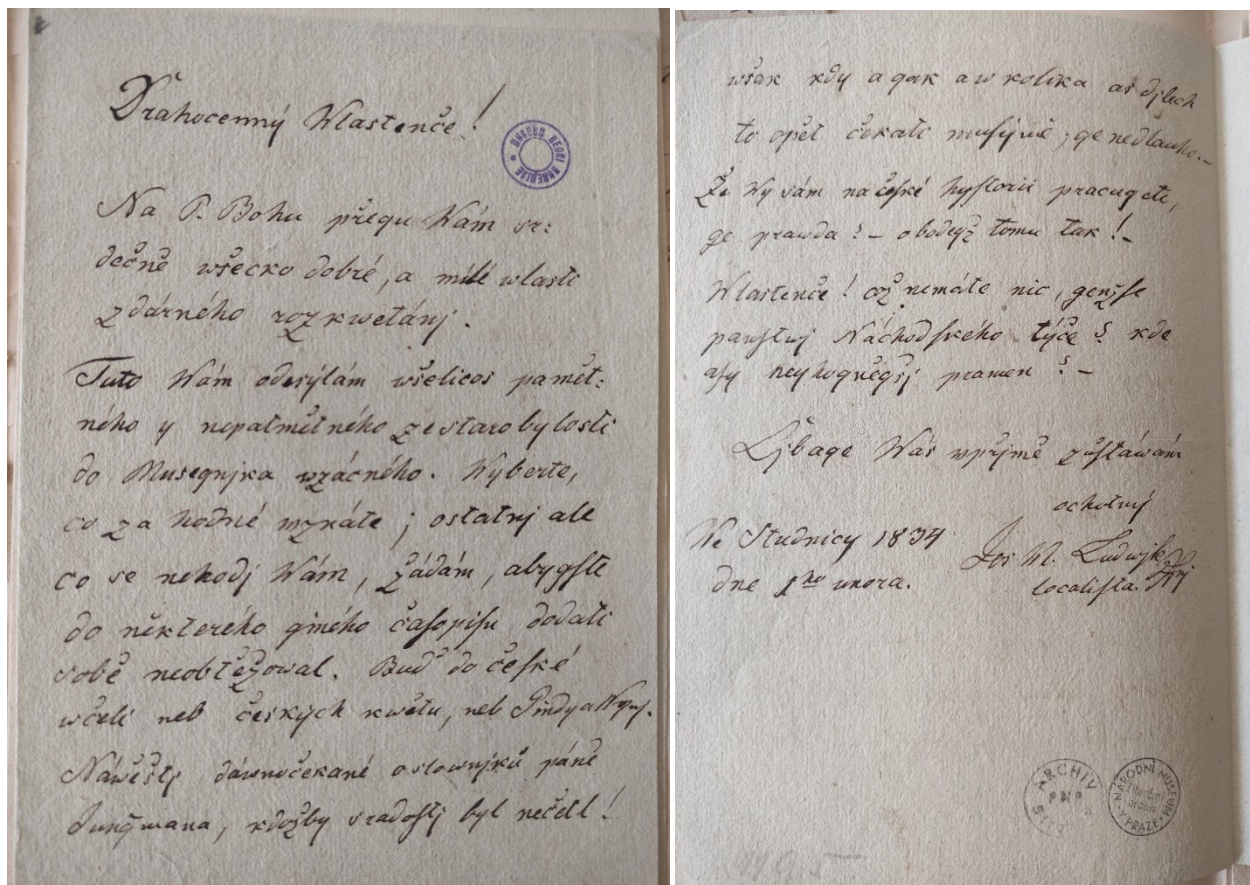 Drahocenný Wlastenče!
MUSEUM REGNI BOHEMIAE
Na P. Bohu přegu Wám sr:
dečně wšecko dobré, a milé wlasti
zdárného rozkwetánj.
Tuto Wám odesýlám wšelicos pamět:
ného y nepamětného ze starobylosti
do Musegnjka wzácného. Wyberte,
co za hodné uznáte; ostatnj ale
co se nehodj Wám, žádám, abygste
do některého giného časopisu dodati
sobě neobtěžowal. Buď do české
wčeli neb českých kwětu, neb Gindy a Nynj.
Náwěstj dáwnočekané o slownjku páně
Jungmana, kdožby s radostj byl nečetl!
wšak kdy a gak a w kolika as djlech
to opět čekati musýme; ge nedlauho.-
Že Wy sám na české hystorii pracugete,
ge prawda? - o bodegž tomu tak!-
Wlastenče! což nemáte nic, genžse
panstwj Náchodského týče? kde
asy neyhogněgsj pramen? -
Ljbage Wás uprjmě zůstáwám
ochotný
We Studnicy 1834
Jos M. Ludwjk
dne 1ho unora.
localista.
ARCHIV
PNP
NÁRODNÍ MUSEUM
literární
archiv
V PRAZE